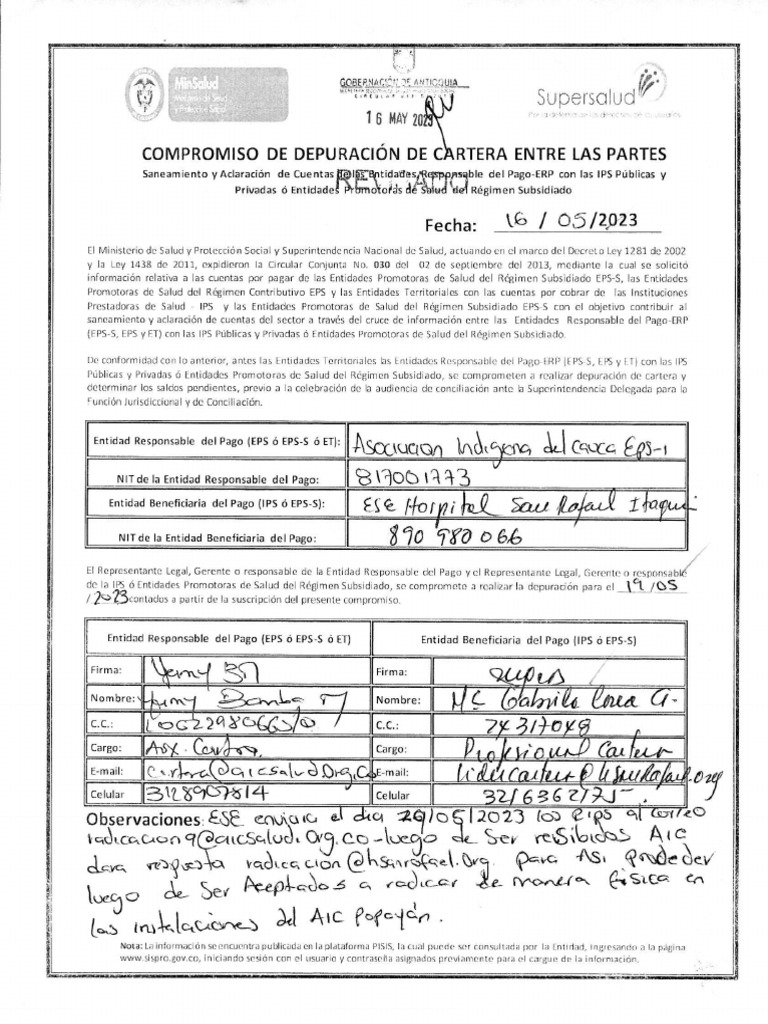 MinSalud
Ministerio de Salud
y Protección Social
GOBERNACIÓN DE ANTIOQUIA
16 MAY 2023
Supersalud
Por la defensa de los derechos de los usuarios
COMPROMISO DE DEPURACIÓN DE CARTERA ENTRE LAS PARTES
Saneamiento y Aclaración de Cuentas de las Entidades Responsable del Pago-ERP con las IPS Públicas y
Privadas ó Entidades Promotoras de Salud del Régimen Subsidiado
Fecha: 16 / 05/2023
El Ministerio de Salud y Protección Social y Superintendencia Nacional de Salud, actuando en el marco del Decreto Ley 1281 de 2002
y la Ley 1438 de 2011, expidieron la Circular Conjunta No. 030 del 02 de septiembre del 2013, mediante la cual se solicitó
información relativa a las cuentas por pagar de las Entidades Promotoras de Salud del Régimen Subsidiado EPS-S, las Entidades
Promotoras de Salud del Régimen Contributivo EPS y las Entidades Territoriales con las cuentas por cobrar de las Instituciones
Prestadoras de Salud - IPS y las Entidades Promotoras de Salud del Régimen Subsidiado EPS-S con el objetivo contribuir al
saneamiento y aclaración de cuentas del sector a través del cruce de información entre las Entidades Responsable del Pago-ERP
(EPS-S, EPS y ET) con las IPS Públicas y Privadas ó Entidades Promotoras de Salud del Régimen Subsidiado.
De conformidad con lo anterior, antes las Entidades Territoriales las Entidades Responsable del Pago-ERP (EPS-S, EPS y ET) con las IPS
Públicas y Privadas ó Entidades Promotoras de Salud del Régimen Subsidiado, se comprometen a realizar depuración de cartera y
determinar los saldos pendientes, previo a la celebración de la audiencia de conciliación ante la Superintendencia Delegada para la
Función Jurisdiccional y de Conciliación.
Entidad Responsable del Pago (EPS ó EPS-S ó ET): Asociacion Indigena del Cauca Eps-i
NIT de la Entidad Responsable del Pago: 817001773
Entidad Beneficiaria del Pago (IPS ó EPS-S): ESE Hospital San Rafael Itagui
NIT de la Entidad Beneficiaria del Pago: 890 980 066
El Representante Legal, Gerente o responsable de la Entidad Responsable del Pago y el Representante Legal, Gerente o responsable
de la IPS ó Entidades Promotoras de Salud del Régimen Subsidiado, se compromete a realizar la depuración para el 19/05
/2023 contados a partir de la suscripción del presente compromiso.
Entidad Responsable del Pago (EPS ó EPS-S ó ET) Entidad Beneficiaria del Pago (IPS ó EPS-S)
Firma: Firma:
Nombre: Nombre: Ma Gabriela
C.C.: C.C.: 24317048
Cargo: Aux. Cartera Cargo: Profesional Cartera
E-mail: cartera@aicsalud.Org.Co E-mail: lidercartera@hsanrafael.org
Celular 3128907814 Celular 3216362175
Observaciones: ESE enviara el dia 20/05/2023 los rips al correo
radicacion9@aicsalud.Org.co - luego de Ser recibidos AIC
dara respuesta radicacion@hsanrafael.Org. para Asi proceder
luego de Ser Aceptados a radicar de manera fisica en
las instalaciones del AIC Popayán.
Nota: La información se encuentra publicada en la plataforma PISIS, la cual puede ser consultada por la Entidad, ingresando a la página
www.sispro.gov.co, iniciando sesión con el usuario y contraseña asignados previamente para el cargue de la información.